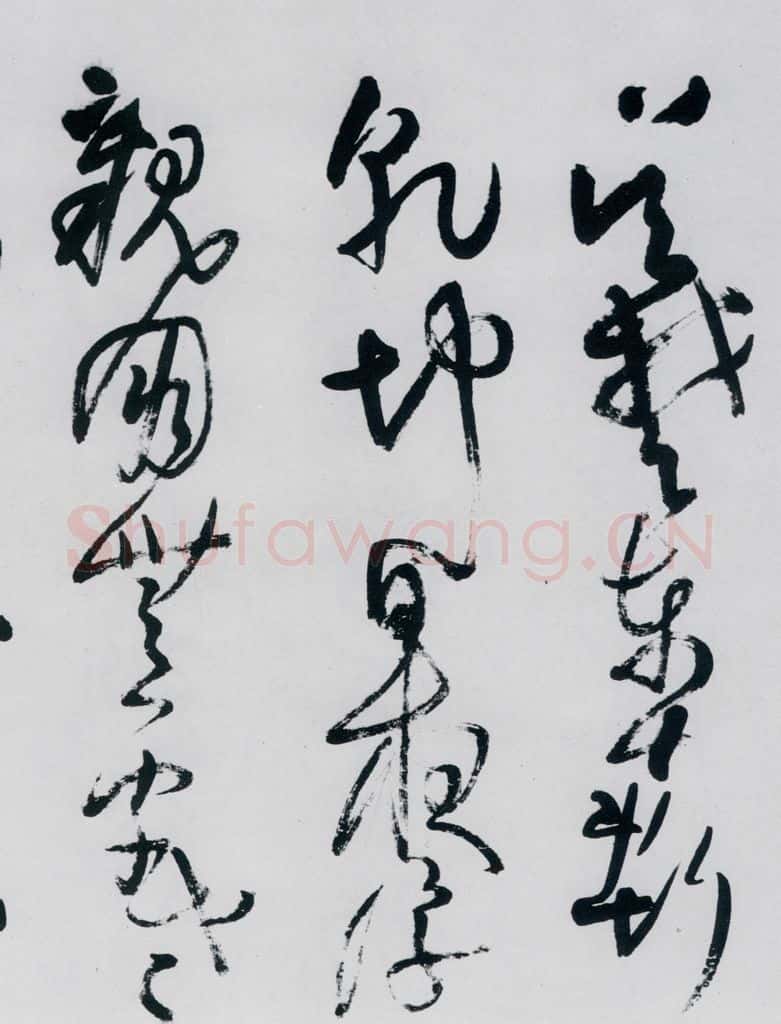 吳楚東南坼
乾坤日夜浮
親朋無一字
Shufawang.CN